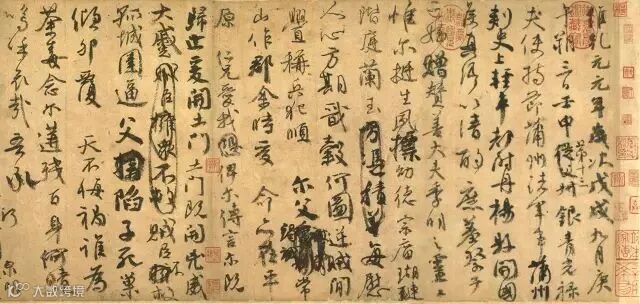 維乾元元年歲次戊戌九月庚
午朔三日壬申第十三叔銀青光祿
夫使持節蒲州諸軍事蒲州
刺史上輕車都尉丹楊縣開國
侯真卿以清酌庶羞祭于
亡姪贈贊善大夫季明之靈曰
惟爾挺生夙標幼德宗廟瑚璉
階庭蘭玉方憑積善每慰
人心方期戩穀何圖逆賊閒
釁稱兵犯順爾父竭誠常
山作郡余時受命亦在平
原仁兄愛我俾爾傳言爾既
歸止爰開土門土門既開凶威
大蹙賊臣擁眾不救賊臣不救
孤城圍逼父擒陷子死巢
傾卵覆天不悔禍誰為
荼毒念爾遘殘百身何贖
嗚呼哀哉吾承
大数跨境